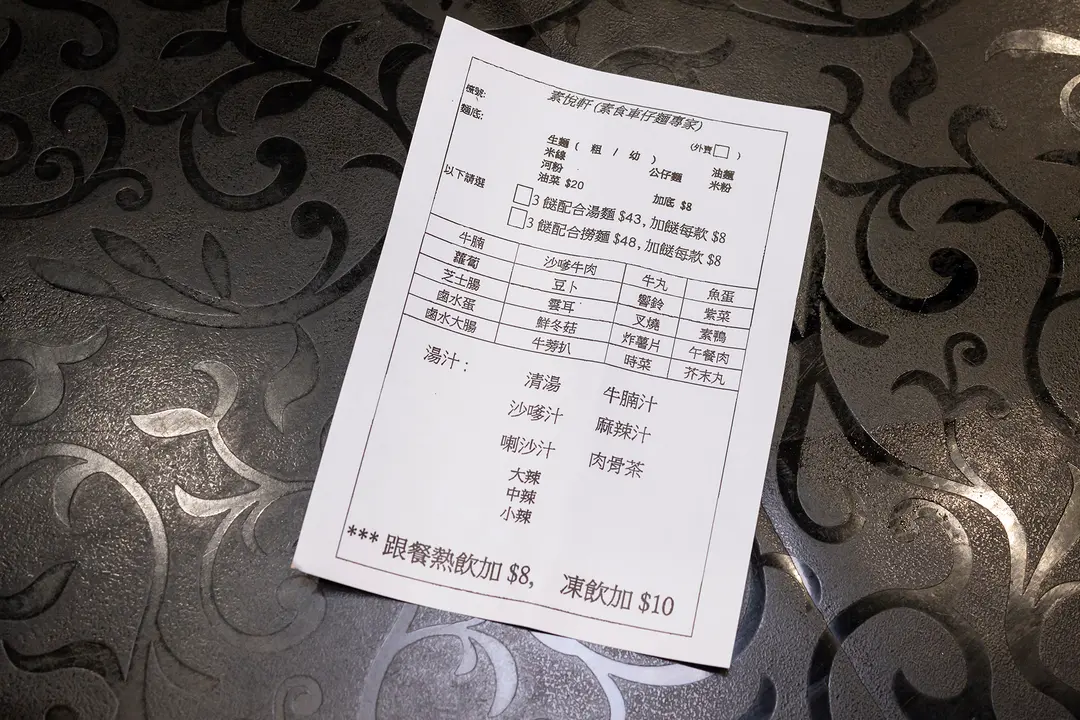 素悅軒 (素食車仔麵專家)
檯號:
(外賣 )
麵底:
生麵 ( 粗 / 幼 ) 公仔麵 油麵
米線 米粉
河粉
油菜 $20 加底 $8
以下請選
3 餸配合湯麵 $43, 加餸每款 $8
3 餸配合撈麵 $48, 加餸每款 $8
牛腩 沙嗲牛肉 牛丸 魚蛋
蘿蔔 豆卜 響鈴 紫菜
芝士腸 雲耳 叉燒 素鴨
鹵水蛋 鮮冬菇 炸薯片 午餐肉
鹵水大腸 牛蒡扒 時菜 芥末丸
湯汁 :
清湯 牛腩汁
沙嗲汁 麻辣汁
喇沙汁 肉骨茶
大辣
中辣
小辣
*** 跟餐熱飲加 $8, 凍飲加 $10